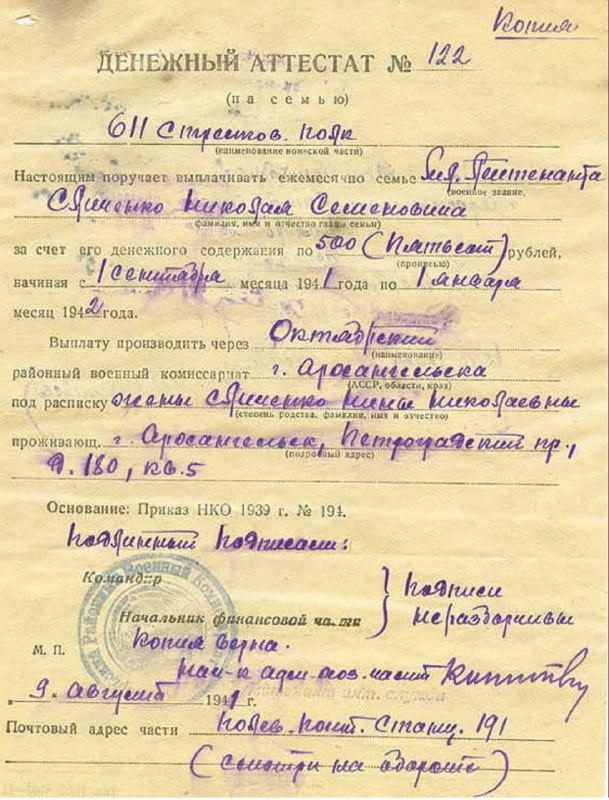 Копия
ДЕНЕЖНЫЙ АТТЕСТАТ № 122
(на семью)
611 стрелков. полк
(наименование воинской части)
Настоящим поручает выплачивать ежемесячно семье мл. лейтенанта
(военное звание,
Николая Семеновича
фамилия, имя и отчество главы семьи)
за счет его денежного содержания по 500 (Пятьсот) рублей,
(прописью)
начиная с 1 сентября месяца 1941 года по 1 января
месяц 1942 года.
Выплату производить через Октябрский
(наименование)
районный военный комиссариат г. Архангельска
(АССР, области, края)
под расписку жены Нины Николаевны
(степень родства, фамилия, имя и отчество)
проживающ. г. Архангельск, Петроградский пр.,
(подробный адрес)
д. 180, кв. 5
Основание: Приказ НКО 1939 г. № 194.
Подлинный подписали:
Командир
Начальник финансовой части
Подписи
неразборчивы
М. П.
Копия верна.
Нач-к адм-хоз. части
9. август 1941 г.
Почтовый адрес части Полев. почт. станц. 191
(смотри на обороте)